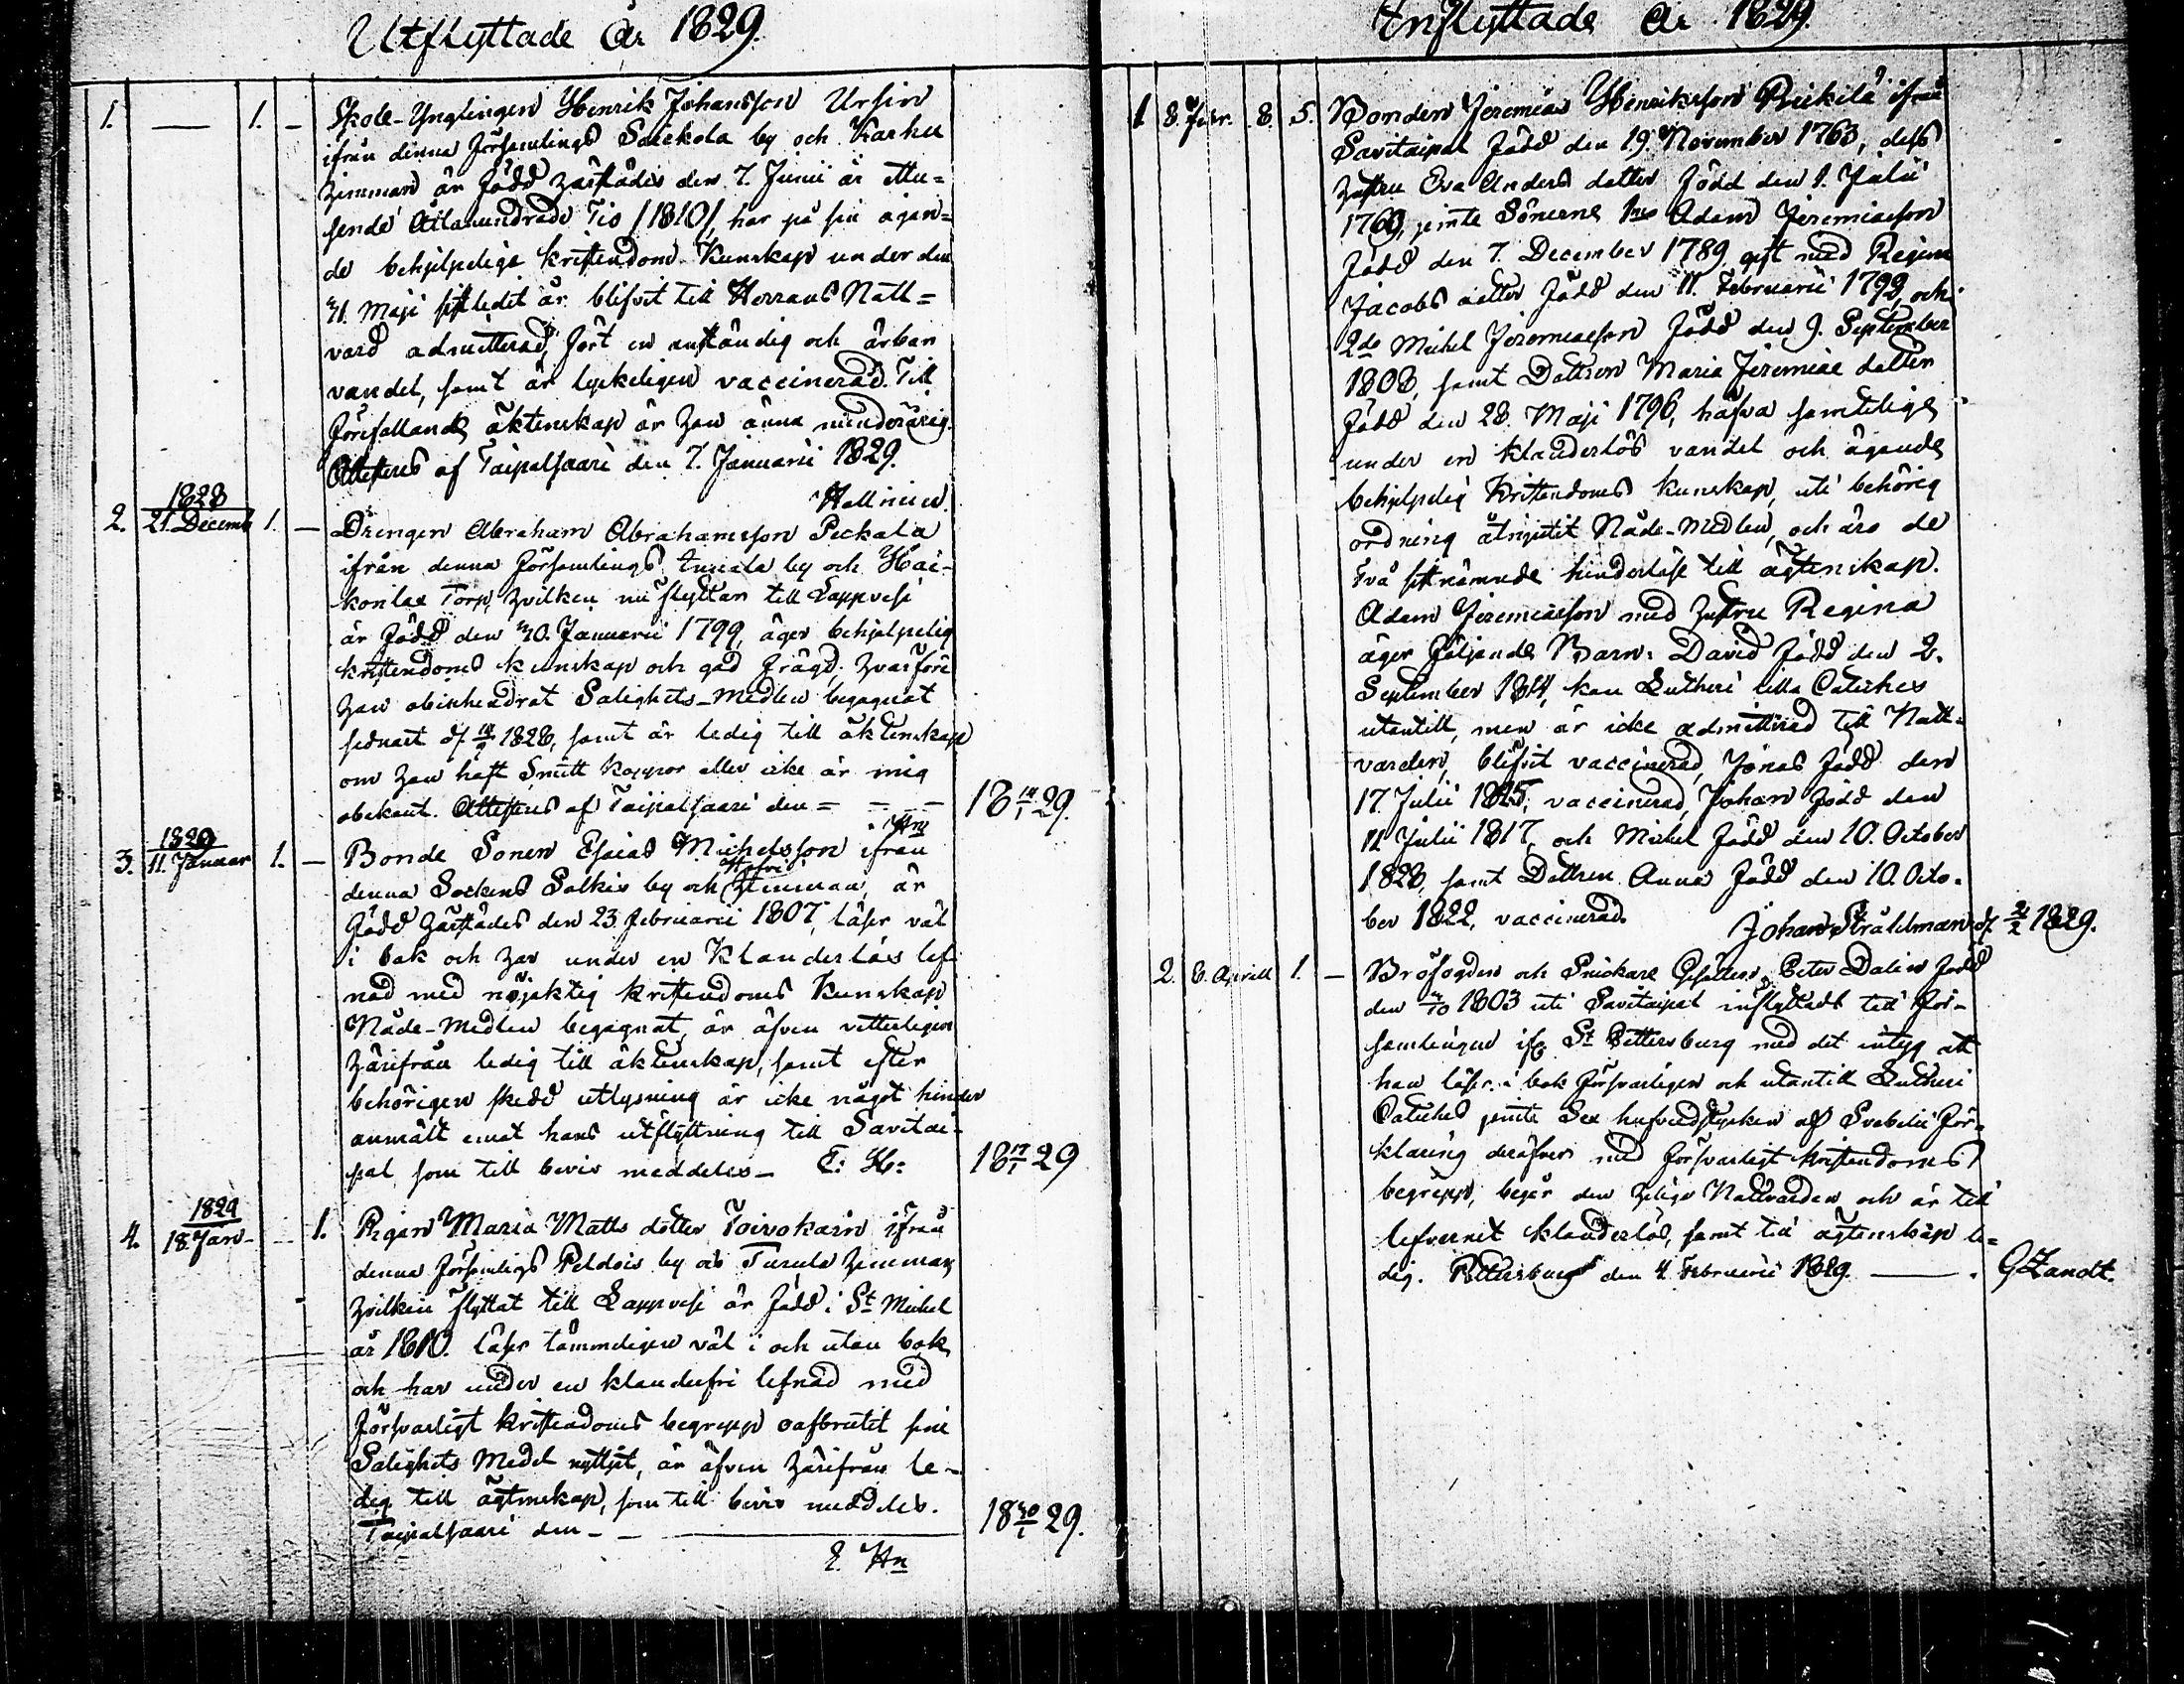 Utflyttade År 1829.
1. — 1. — Skole-Ynglingen Henrik Johansson Ursin
ifrån denna Församlings Saikola by och Karhu
hemman är född härstädes den 7. Junii år ettu-
sende Åttahundrade Tio /1810/, har på sin ägan-
de behjelpelige kristendoms Kunskap under den
Maji sistledit år blifvit till Herrans Natt-
vard admitterad, fört en anständig och ärbar
vandel, samt är lyckeligen vaccinerad. Till
förefallande äktenskap är han ännu minderårig.
Attesteras af Taipalsaari den 7. Januarii 1829.
Hallnius.
1828
2. 21. Decemb 1. — Drengen Abraham Abrahamsson Peckala
ifrån denna Församlings by och Hai-
konlax Torp, hvilken nu flyttar till Lappvesi
är född den 30. Januarii 1799, äger behjelpelig
kristendoms kunskap och god frägd; hvarföre
han obehindrat Salighets-Medlen begagnat
sednast d. 1828, samt är ledig till äktenskap
om han haft Smitt koppor eller icke är mig
obekant. Attesteras af Taipalsaari den — — — 18 29.
Hn
1829
3. 11. Januar 1. — Bonde Sonen Esaias Michelsson ifrån
denna Sockens Solkis by och Hofri hemman, är
född härstädes den 23. Februarii 1807, läser väl
i bok och har under en Klanderlös lef
nad med nöjaktig kristendoms Kunskap
Nåde-Medlen begagnat, är äfven vetterligen
härifrån ledig till äktenskap, samt efter
behörigen skedd utlysning är icke något hinder
anmält emot hans utflyttning till Savitai-
pal, som till bevis meddeles — E: H: 18 17/1 29
1829
4. 18. Jan — 1. Pigan Maria Matts dotter Toivokain ifrån
denna Församlings Peldois by och Turula hemman,
hvilken flyttat till Lappvesi är född i St Michel
år 1810. läser tämmeligen väl i och utan bok,
och har under en klanderfri lefnad med
försvarligt kristendoms begrepp oafbrutit sine
Salighets Medel nyttjat, är äfven härifrån le-
dig till ägtenskap, som till bevis meddeles.
Taipalsaari den — — 18 30/1 29.
E. Hn
Inflyttade År 1829.
1. 8. Febr. 8. 5. Bonden Jeremias Henriksson Rickilä ifrån
Savitaipal född den 19. November 1763, dess
hustru Eva Anders dotter född den 1. Julii
1769, jemte Sönerne 1mo Adam Jeremiasson
född den 7. December 1789, gift med Regina
Jacobs dotter född den 11. Februarii 1792, och
2do Michel Jeremiasson född den 9. September
1808, samt Dottren Maria Jeremiæ dotter
född den 28. Maji 1796, hafva samtelige
under en klanderlös vandel och ägande
behjelpelig Kristendoms kunskap, uti behörig
ordning åtnjutit Nåde-Medlen, och äro de
två sistnämnde hinderlöse till ägtenskap.
Adam Jeremiasson med hustru Regina
äger följande Barn: David född den 2.
September 1814, kan Lutheri lilla Catches
utantill, men är icke admitterad till Natt-
varden, blifvit vaccinerad, Jonas född den
17. Julii 1825, vaccinerad, Johan född den
11. Julii 1817, och Michel född den 10. October
1828, samt Dottren Anna född den 10. Octo-
ber 1822, vaccinerad. Johan Stråhlman d. 1829.
2. 6. Aprill 1. — Brofogden och Snickare Gesällen Peter Dalin född
den 1803 uti Savitaipal inflyttade till För-
samlingen ifr. St Pettersburg med det intyg att
han läser i bok försvarligen och utantill Lutheri
Catches jemte Sex hufvudstycken af Svebelii För-
klaring deröfver med försvarligt kristendoms
begrepp, begår den helige Nattvarden och är till
lefvernet klanderlös, samt till ägtenskap le-
dig. Pettersburg den 4. Februarii 1829. — GZandt.